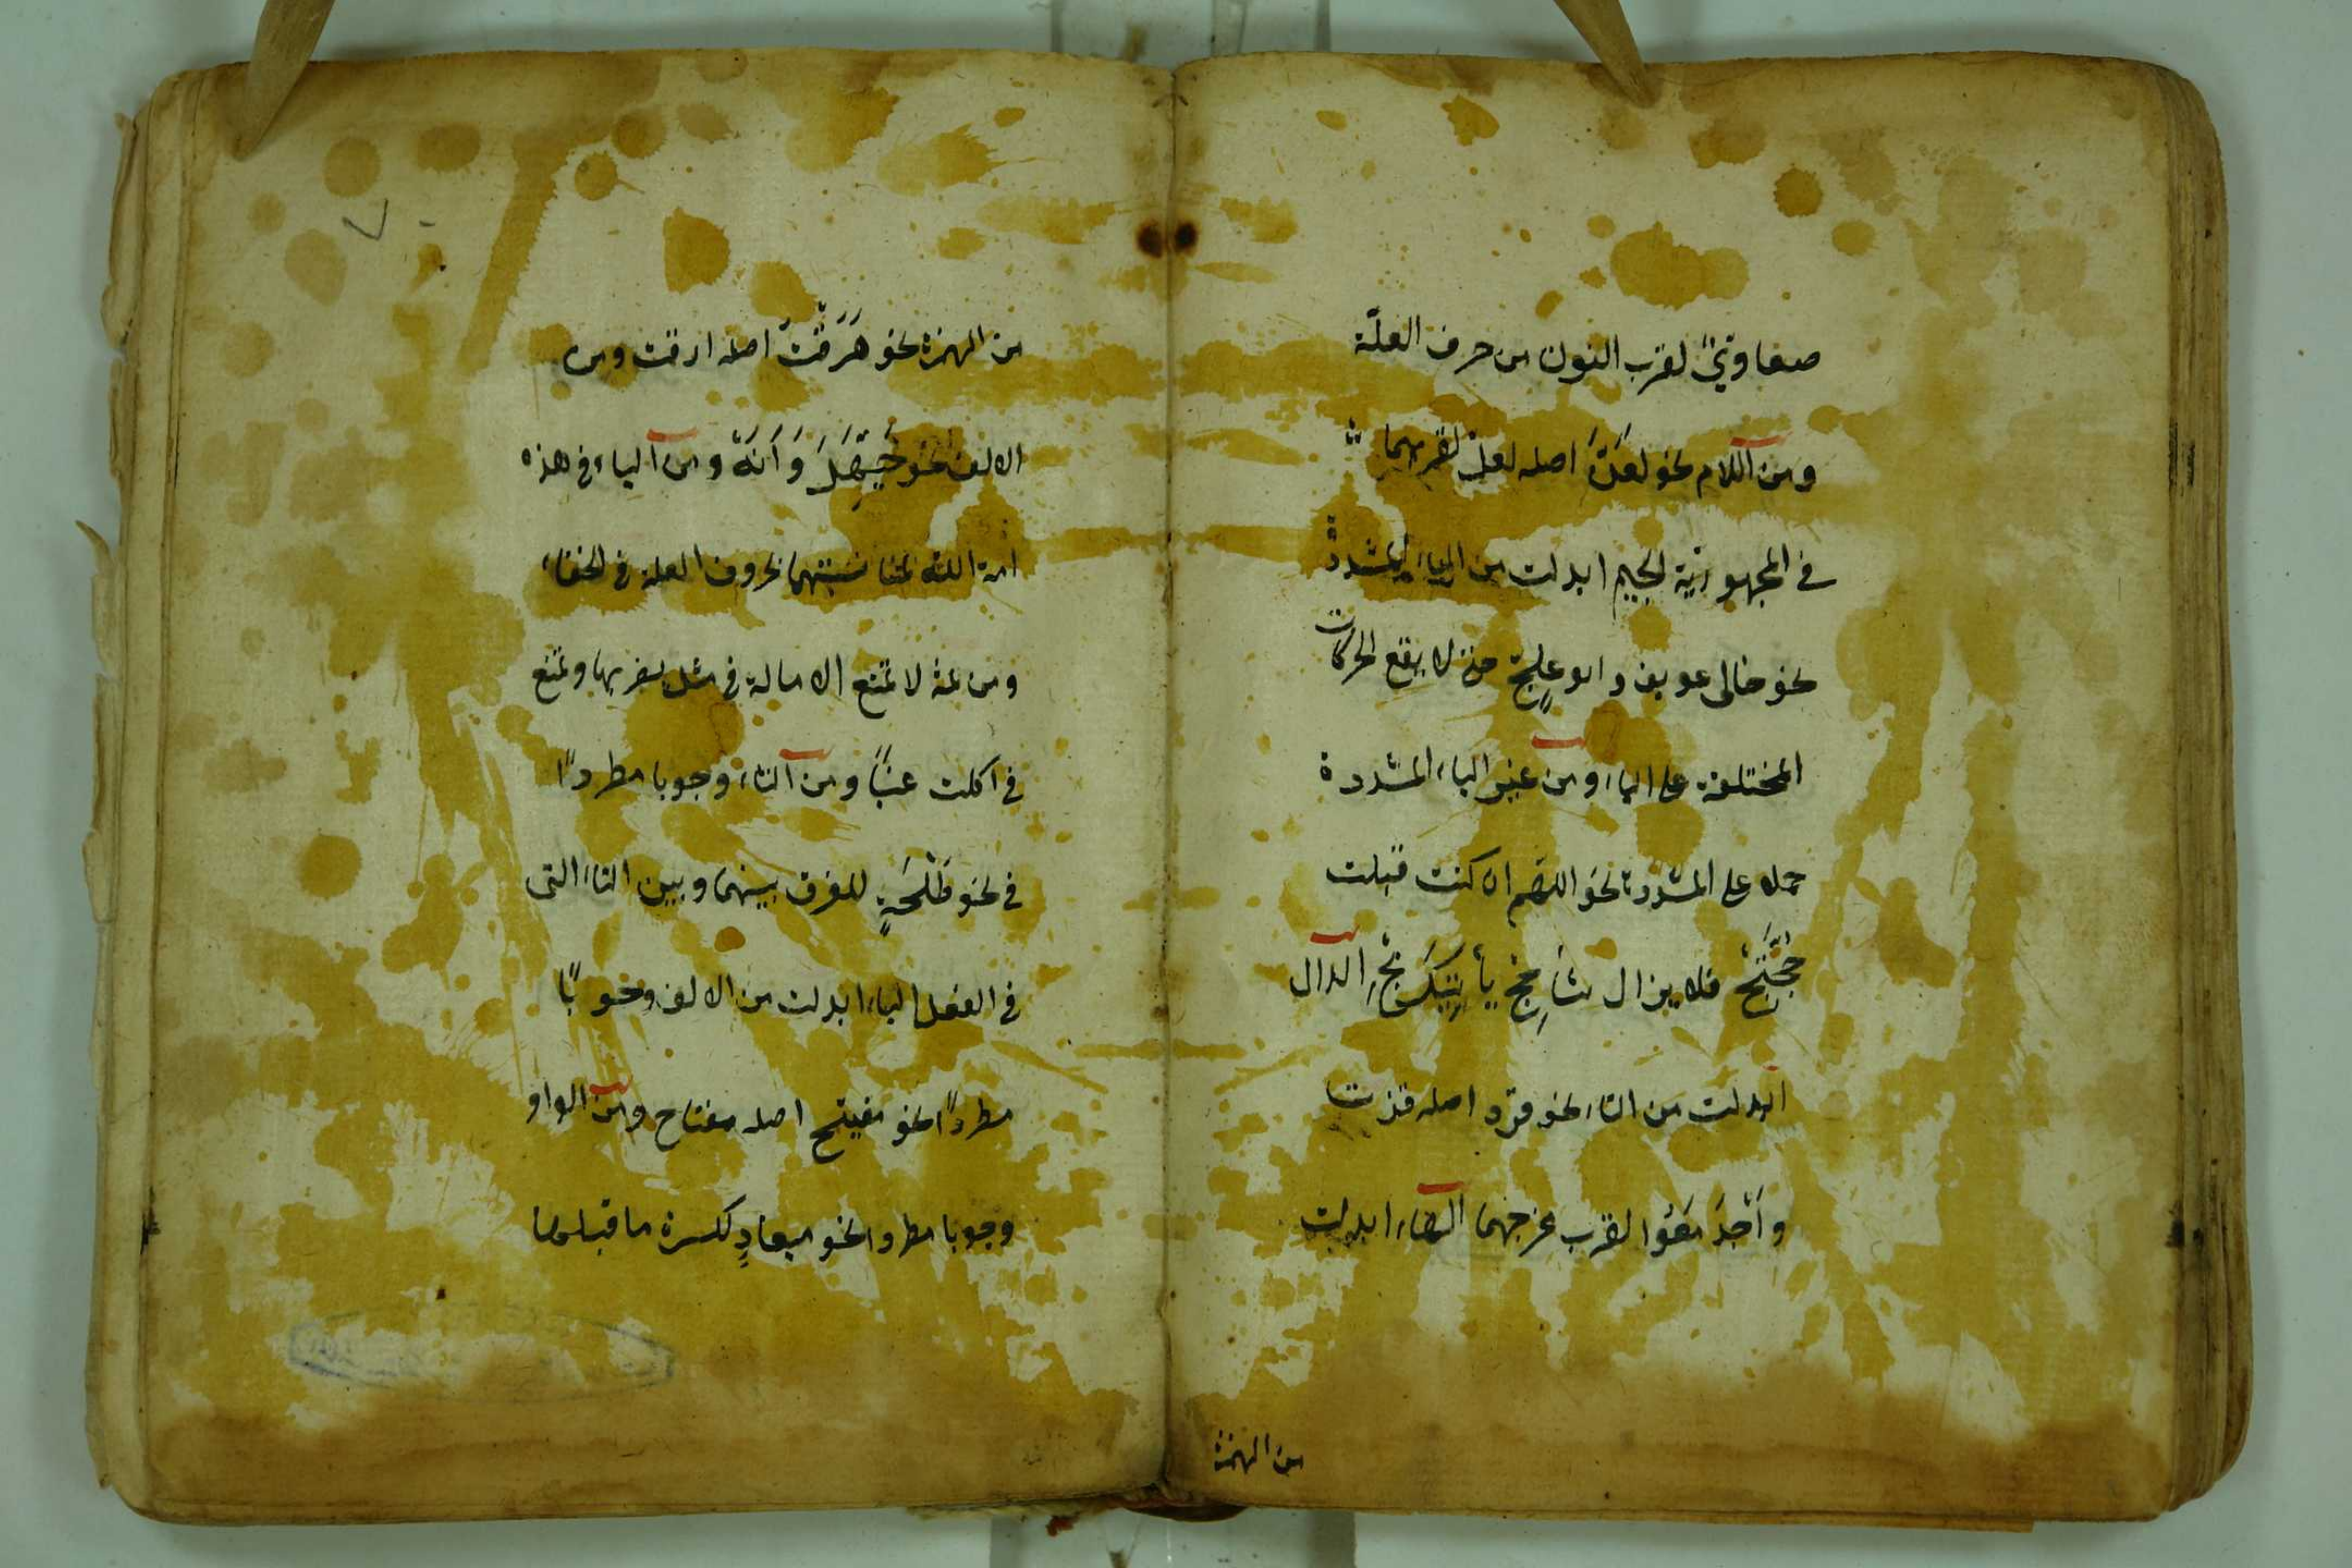 صنعاوىٌّ لقرب النون من حرف العلّة
ومن اللام نحو لعنّ اصله لعلّ لقربهما
في المجهورية الجيم ابدلت من الياء المشددة
نحو خالى عويف وابو علجّ حتى لا يقع الحركات
المختلفة على الياء ومن غير الياء المشددة
حملا على المشددة نحو اللهم ان كنت قبلت
حجّتج فلا يزال شاحج يأتيك بج الدال
ابدلت من التاء نحو فزد اصله فزت
واجدمعوا لقرب مخرجهما الهاء ابدلت
من الهمزة
من الهمزة نحو هَرَقْتَ اصله ارقت ومن
الالف نحو حَيَّهَلَهْ وَاَنَهْ ومن الياء في هذه
امة الله لمناسبتهما بحروف العلة في الخفاء
ومن ثمة لا تمنع الامالة في مثل يضربها وتمنع
في اكلت عنبًا ومن التاء وجوبا مطردًا
في نحو طَلْحَةٍ للفرق بينهما وبين التاء التى
في الفعل الياء ابدلت من الالف وجوبًا
مطردًا نحو مفيتح اصله مفتاح ومن الواو
وجوبا مطردا نحو ميعادٍ لكسرة ما قبلها